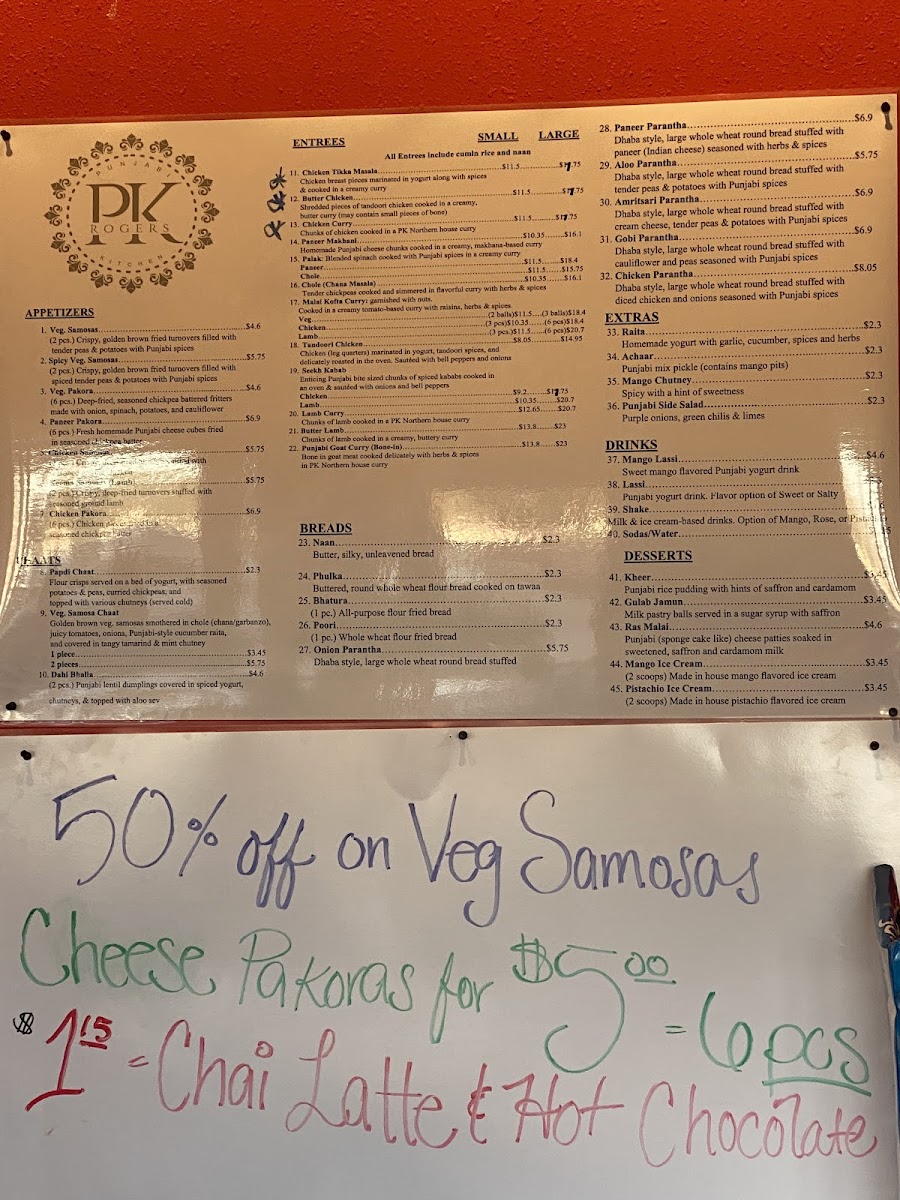 PUNJABI
PK
ROGERS
KITCHEN
APPETIZERS
1. Veg. Samosas $4.6
(2 pcs.) Crispy, golden brown fried turnovers filled with
tender peas & potatoes with Punjabi spices
2. Spicy Veg. Samosas $5.75
(2 pcs.) Crispy, golden brown fried turnovers filled with
spiced tender peas & potatoes with Punjabi spices
3. Veg. Pakora $4.6
(6 pcs.) Deep-fried, seasoned chickpea battered fritters
made with onion, spinach, potatoes, and cauliflower
4. Paneer Pakora $6.9
(6 pcs.) Fresh homemade Punjabi cheese cubes fried
in seasoned chickpea batter
5. Chicken Samosas $5.75
with
(Lamb) $5.75
(2 pcs.) Crispy, deep-fried turnovers stuffed with
seasoned ground lamb
7. Chicken Pakora $6.9
(6 pcs.) Chicken
seasoned chickpea batter
CHAATS
8. Papdi Chaat $2.3
Flour crisps served on a bed of yogurt, with seasoned
potatoes & peas, curried chickpeas, and
topped with various chutneys (served cold)
9. Veg. Samosa Chaat
Golden brown veg. samosas smothered in chole (chana/garbanzo),
juicy tomatoes, onions, Punjabi-style cucumber raita,
and covered in tangy tamarind & mint chutney
1 piece $3.45
2 pieces $5.75
10. Dahi Bhalla $4.6
(2 pcs.) Punjabi lentil dumplings covered in spiced yogurt,
chutneys, & topped with aloo sev
ENTREES SMALL LARGE
All Entrees include cumin rice and naan
11. Chicken Tikka Masala $11.5 $17.75
Chicken breast pieces marinated in yogurt along with spices
& cooked in a creamy curry
12. Butter Chicken $11.5 $17.75
Shredded pieces of tandoori chicken cooked in a creamy,
butter curry (may contain small pieces of bone)
13. Chicken Curry $11.5 $17.75
Chunks of chicken cooked in a PK Northern house curry
14. Paneer Makhani $10.35 $16.1
Homemade Punjabi cheese chunks cooked in a creamy, makhana-based curry
15. Palak: Blended spinach cooked with Punjabi spices in a creamy curry
Paneer $11.5 $18.4
Chole $11.5 $15.75
16. Chole (Chana Masala) $10.35 $16.1
Tender chickpeas cooked and simmered in flavorful curry with herbs & spices
17. Malai Kofta Curry: garnished with nuts.
Cooked in a creamy tomato-based curry with raisins, herbs & spices.
Veg (2 balls)$11.5 (3 balls)$18.4
Chicken (3 pcs)$10.35 (6 pcs)$18.4
Lamb (3 pcs)$11.5 (6 pcs)$20.7
18. Tandoori Chicken $8.05 $14.95
Chicken (leg quarters) marinated in yogurt, tandoori spices, and
delicately roasted in the oven. Sautéed with bell peppers and onions
19. Seekh Kabab
Enticing Punjabi bite sized chunks of spiced kababs cooked in
an oven & sautéed with onions and bell peppers
Chicken $9.2 $17.75
Lamb $10.35 $20.7
20. Lamb Curry $12.65 $20.7
Chunks of lamb cooked in a PK Northern house curry
21. Butter Lamb $13.8 $23
Chunks of lamb cooked in a creamy, buttery curry
22. Punjabi Goat Curry (Bone-in) $13.8 $23
Bone in goat meat cooked delicately with herbs & spices
in PK Northern house curry
BREADS
23. Naan $2.3
Butter, silky, unleavened bread
24. Phulka $2.3
Buttered, round whole wheat flour bread cooked on tawaa
25. Bhatura $2.3
(1 pc.) All-purpose flour fried bread
26. Poori $2.3
(1 pc.) Whole wheat flour fried bread
27. Onion Parantha $5.75
Dhaba style, large whole wheat round bread stuffed
28. Paneer Parantha $6.9
Dhaba style, large whole wheat round bread stuffed with
paneer (Indian cheese) seasoned with herbs & spices
29. Aloo Parantha $5.75
Dhaba style, large whole wheat round bread stuffed with
tender peas & potatoes with Punjabi spices
30. Amritsari Parantha $6.9
Dhaba style, large whole wheat round bread stuffed with
cream cheese, tender peas & potatoes with Punjabi spices
31. Gobi Parantha $6.9
Dhaba style, large whole wheat round bread stuffed with
cauliflower and peas seasoned with Punjabi spices
32. Chicken Parantha $8.05
Dhaba style, large whole wheat round bread stuffed with
diced chicken and onions seasoned with Punjabi spices
EXTRAS
33. Raita $2.3
Homemade yogurt with garlic, cucumber, spices and herbs
34. Achaar $2.3
Punjabi mix pickle (contains mango pits)
35. Mango Chutney $2.3
Spicy with a hint of sweetness
36. Punjabi Side Salad $2.3
Purple onions, green chilis & limes
DRINKS
37. Mango Lassi $4.6
Sweet mango flavored Punjabi yogurt drink
38. Lassi
Punjabi yogurt drink. Flavor option of Sweet or Salty
39. Shake
Milk & ice cream-based drinks. Option of Mango, Rose, or Pistachio
40. Sodas/Water
DESSERTS
41. Kheer $3.45
Punjabi rice pudding with hints of saffron and cardamom
42. Gulab Jamun $3.45
Milk pastry balls served in a sugar syrup with saffron
43. Ras Malai $4.6
Punjabi (sponge cake like) cheese patties soaked in
sweetened, saffron and cardamom milk
44. Mango Ice Cream $3.45
(2 scoops) Made in house mango flavored ice cream
45. Pistachio Ice Cream $3.45
(2 scoops) Made in house pistachio flavored ice cream
50% off on Veg Samosas
Cheese Pakoras for $5.00 = 6 pcs
$1.15 = Chai Latte & Hot Chocolate